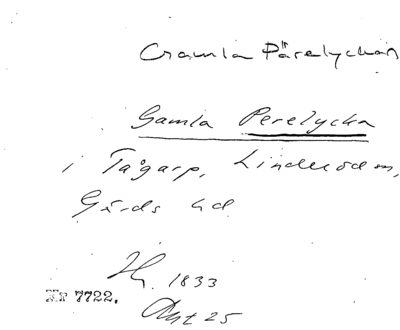 Gamla Pärelyckan
Gamla Perelycka
i Tågarp, Linderödsn,
Gärds hd
1833
Akt 25
Nr 7722.